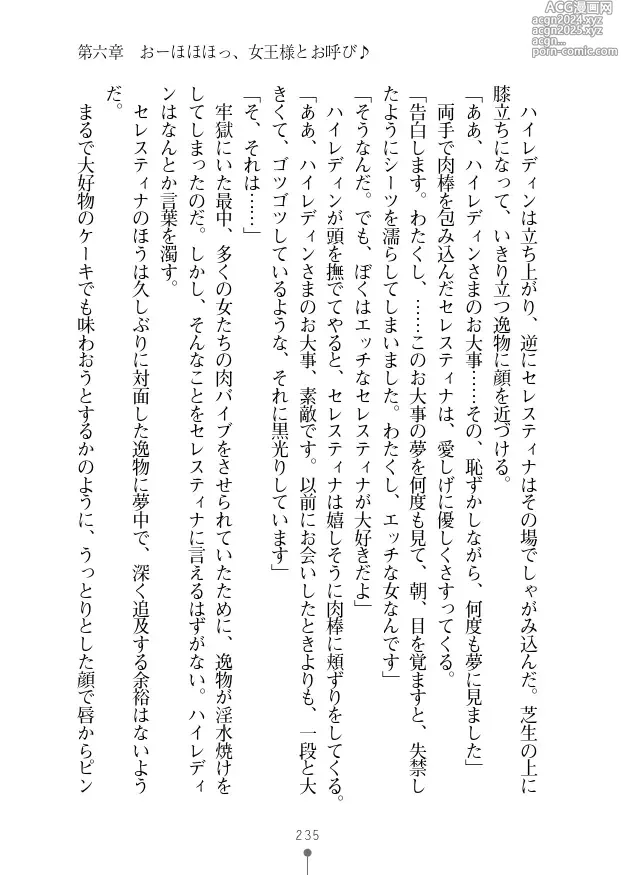 acgn2024.com
acgn2025.com
acg2024.com
第六章　おーほほほっ、女王様とお呼び♪
ハイレディンは立ち上がり、逆にセレスティナはその場でしゃがみ込んだ。芝生の上に
膝立ちになって、いきり立つ逸物に顔を近づける。
「ああ、ハイレディンさまのお大事……その、恥ずかしながら、何度も夢に見ました」
両手で肉棒を包み込んだセレスティナは、愛しげに優しくさすってくる。
「告白します。わたくし、……このお大事の夢を何度も見て、朝、目を覚ますと、失禁し
たようにシーツを濡らしてしまいました。わたくし、エッチな女なんです」
「そうなんだ。でも、ぼくはエッチなセレスティナが大好きだよ」
ハイレディンが頭を撫でてやると、セレスティナは嬉しそうに肉棒に頬ずりをしてくる。
「ああ、ハイレディンさまのお大事、素敵です。以前にお会いしたときよりも、一段と大
きくて、ゴツゴツしているような、それに黒光りしています」
「そ、それは……」
牢獄にいた最中、多くの女たちの肉バイブをさせられていたために、逸物が淫水焼けを
してしまったのだ。しかし、そんなことをセレスティナに言えるはずがない。ハイレディ
ンはなんとか言葉を濁す。
セレスティナのほうは久しぶりに対面した逸物に夢中で、深く追及する余裕はないよう
だ。
まるで大好物のケーキでも味わおうとするかのように、うっとりとした顔で唇からピン
235